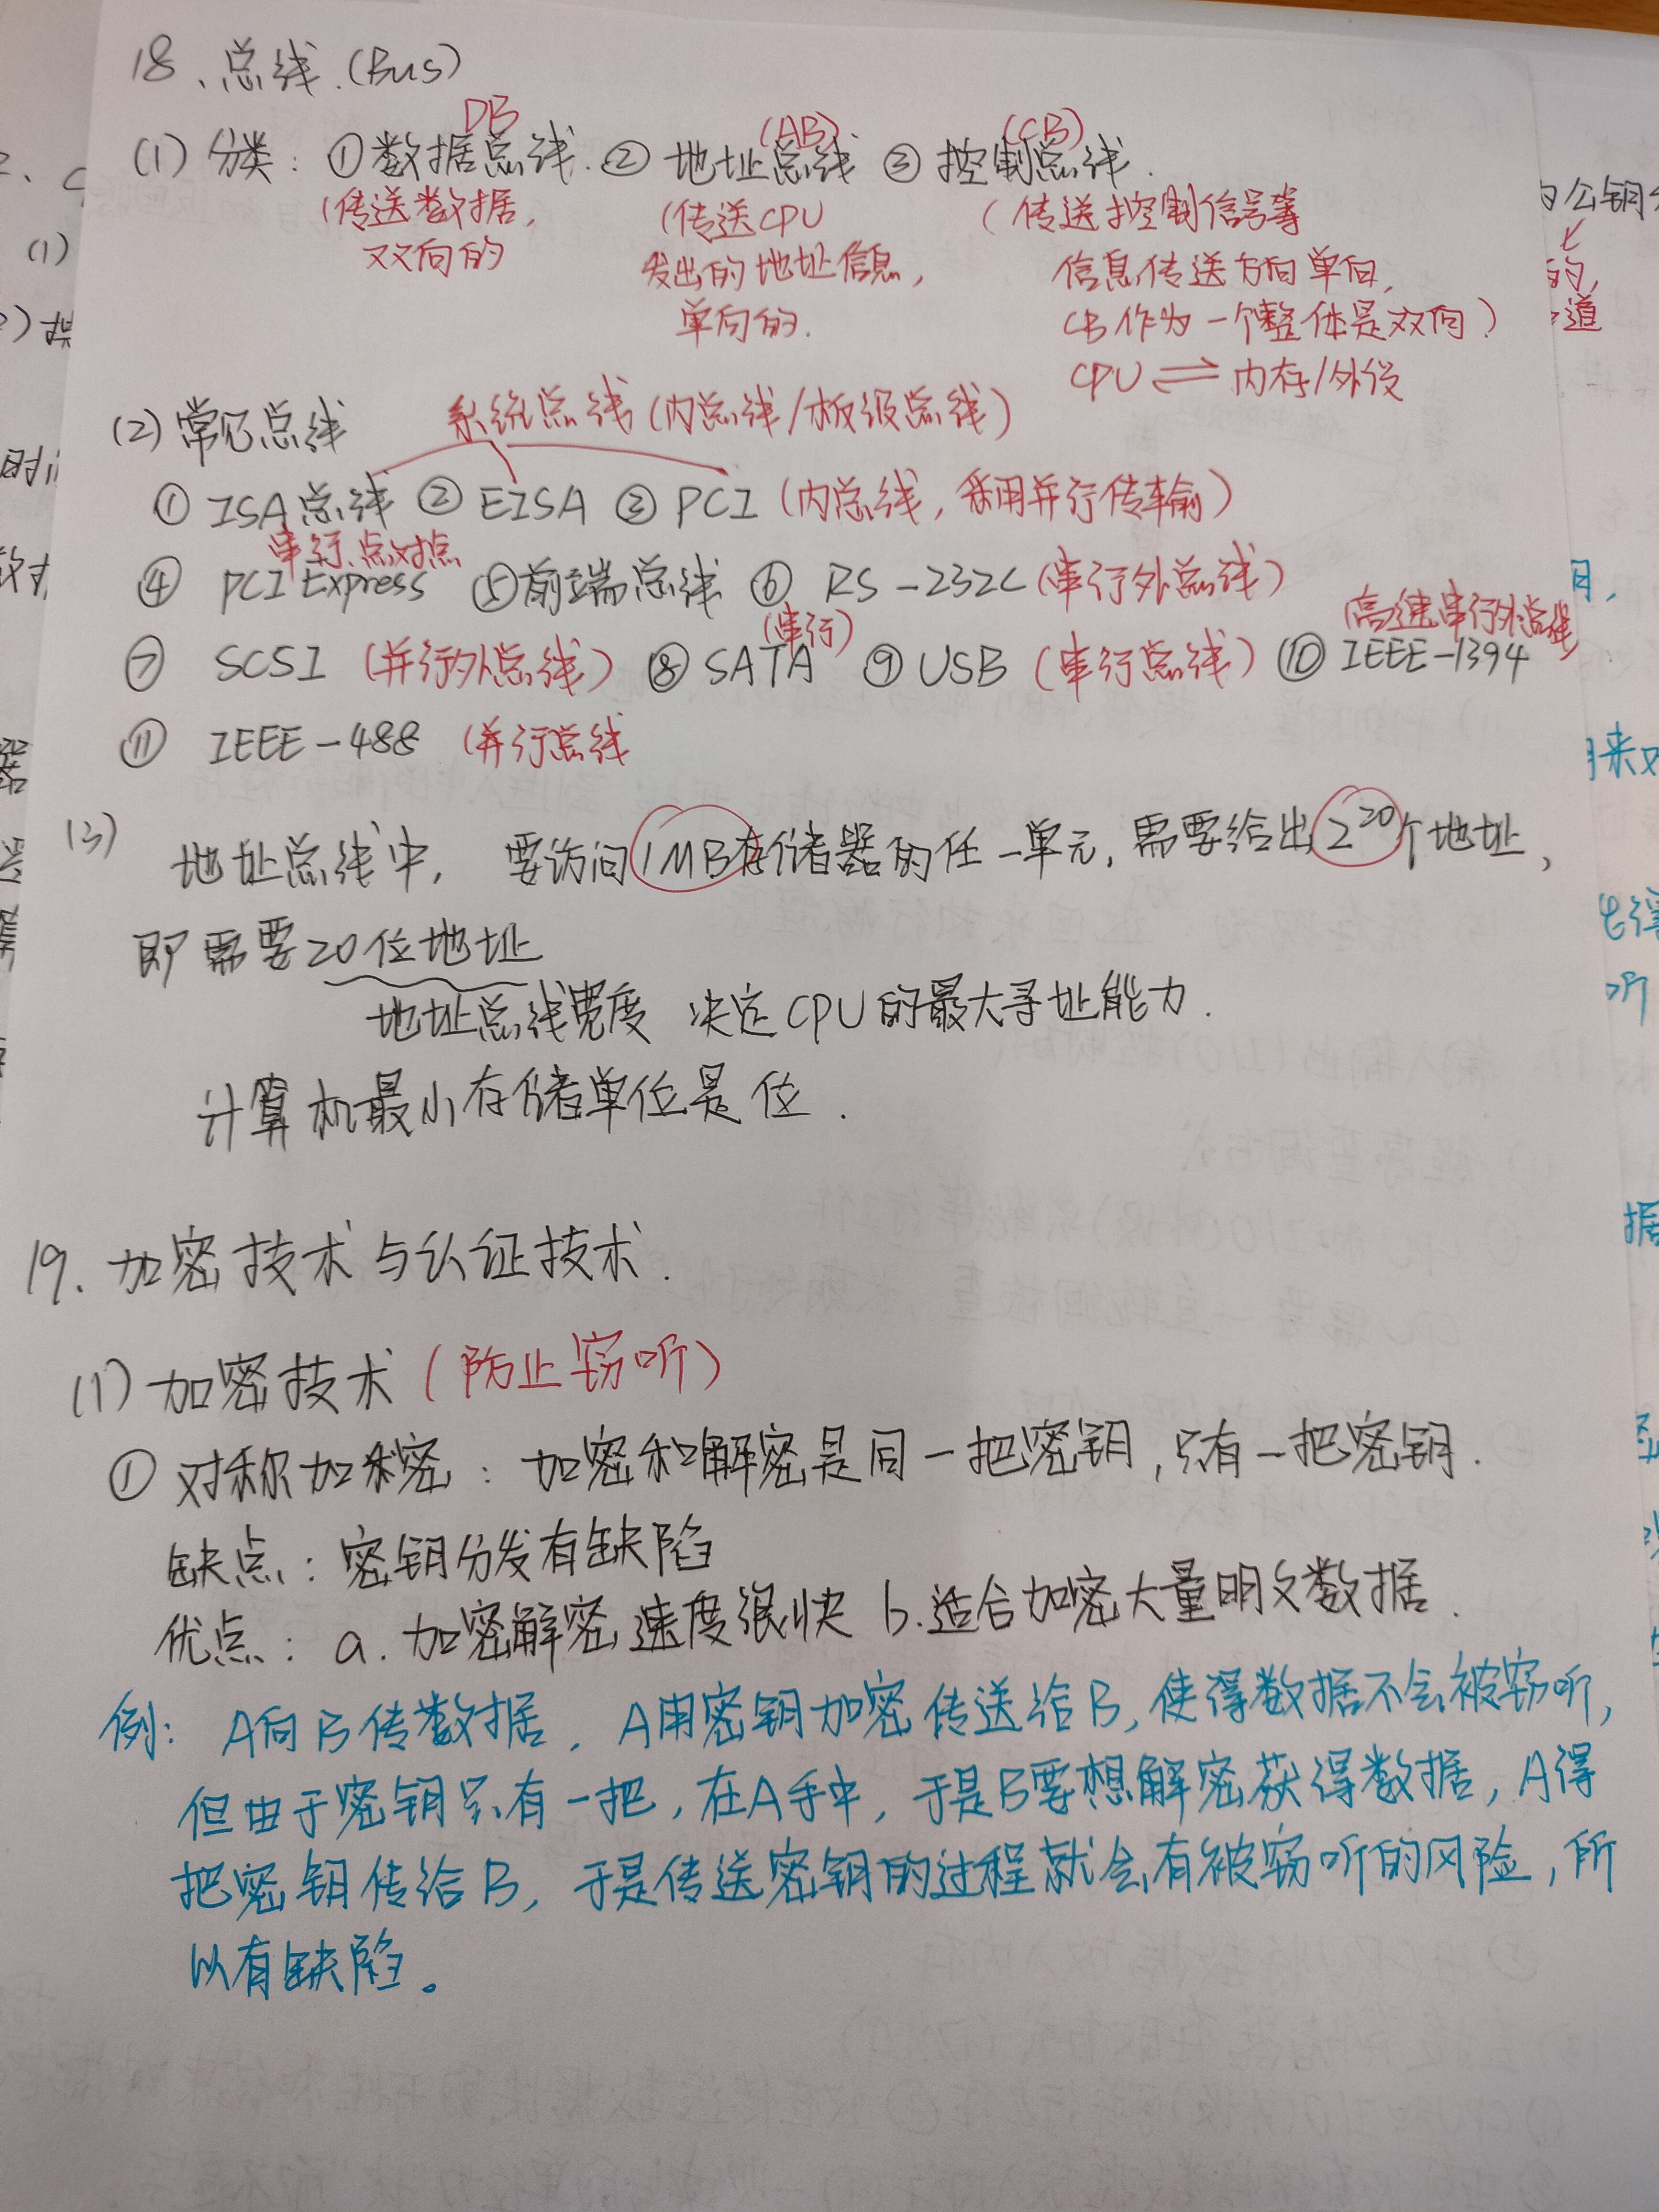 18、总线.(Bus)
DB (AB) (CB)
(1) 分类: ①数据总线.② 地址总线 ③ 控制总线.
(传送数据, (传送CPU (传送控制信号等
双双向的 发出的地址信息, 信息传送方向单向,
单向的. CB作为一个整体是双向)
CPU ⇌ 内存/外设
(2) 常见总线 系统总线(内总线/板级总线)
① ISA总线 ② EISA ③ PCI (内总线, 采用并行传输)
串行、点对点
④ PCI Express ⑤前端总线 ⑥ RS-232C (串行外总线)
(串行) (高速串行外总线)
⑦ SCSI (并行外总线) ⑧ SATA ⑨ USB (串行总线) ⑩ IEEE-1394
⑪ IEEE-488 (并行总线
(3) 地址总线中, 要访问1MB存储器的任一单元, 需要给出2^20个地址,
即需要20位地址
地址总线宽度 决定CPU的最大寻址能力.
计算机最小存储单位是位.
19. 加密技术与认证技术.
(1) 加密技术 (防止窃听)
① 对称加密: 加密和解密是同一把密钥, 只有一把密钥.
缺点: 密钥分发有缺陷
优点: a. 加密解密速度很快 b.适合加密大量明文数据.
例: A向B传数据, A用密钥加密传送给B, 使得数据不会被窃听,
但由于密钥只有一把, 在A手中, 于是B要想解密获得数据, A得
把密钥传给B, 于是传送密钥的过程就会有被窃听的风险, 所
以有缺陷。